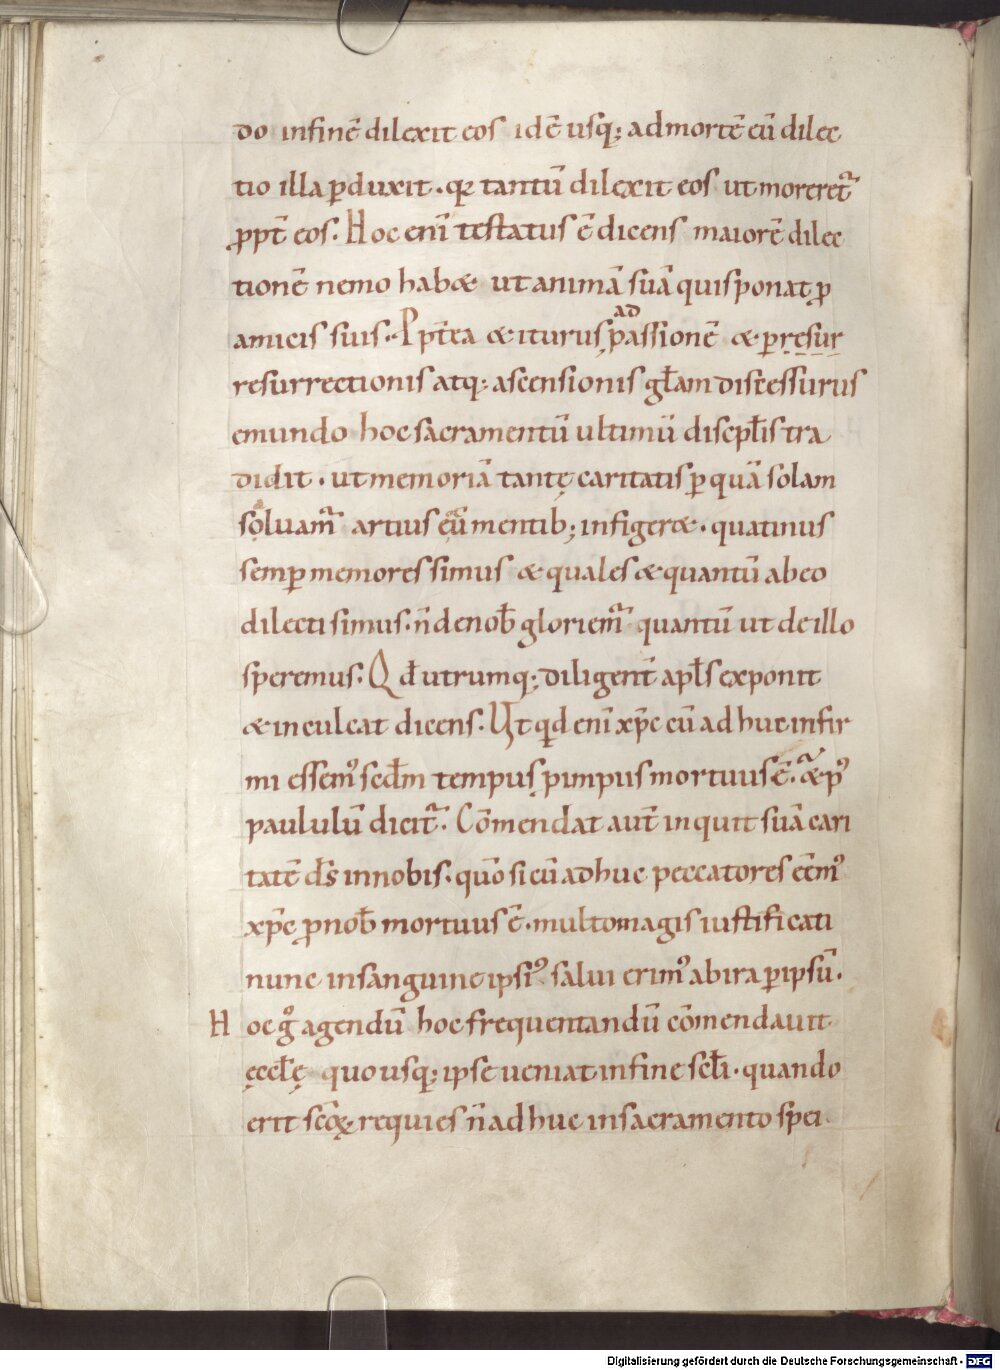 do infinē dilexit eos idē usq; admortē eū dilec
tio illa ꝑduxit. qꝛ tantū dilexit eos ut moreret᷑
ꝓpt̄ eos. Hoc enī testatus ē dicens maiorē dilec
tionē nemo habet ut animā suā quis ponat ꝓ
amicis suis. Ꝓpt̄ea & iturus ad passionē & ꝑ resur
resurrectionis atq; ascensionis gl̄am discessurus
emundo hoc sacramentū ultimū discipl̄is tra
didit. ut memoriā tantę caritatis ꝑ quā solam
soluam᷑ artius eūmentib; infigeret. quatinus
semꝑ memores simus & quales & quantū abeo
dilecti simus. n̄ denob̄ gloriem᷑ quantū ut de illo
speremus. Qd̄ utrumq; diligent̄ apl̄s exponit
& inculcat dicens. Ut qid enī xp̄c cū ad huc infir
mi essemꝰ scd̄m tempus ꝓ impus mortuus ē. & pꝰ
paululū dicit᷑. Cōmendat aut̄ inquit suā cari
tatē d̄s innobis. quō si cū adhuc peccatores eēmꝰ
xp̄c ꝓ nob̄ mortuus ē. multomagis iustificati
nunc insanguine ipsiꝰ salui erimꝰ abira ꝑ ipsū.
Hoc gͦ agendū hoc frequentandū cōmendauit
ęccl̄ę quousq; ipse ueniat infine scl̄i. quando
erit scōꝝ requies n̄ adhuc insacramento spei
Digitalisierung gefördert durch die Deutsche Forschungsgemeinschaft - DFG